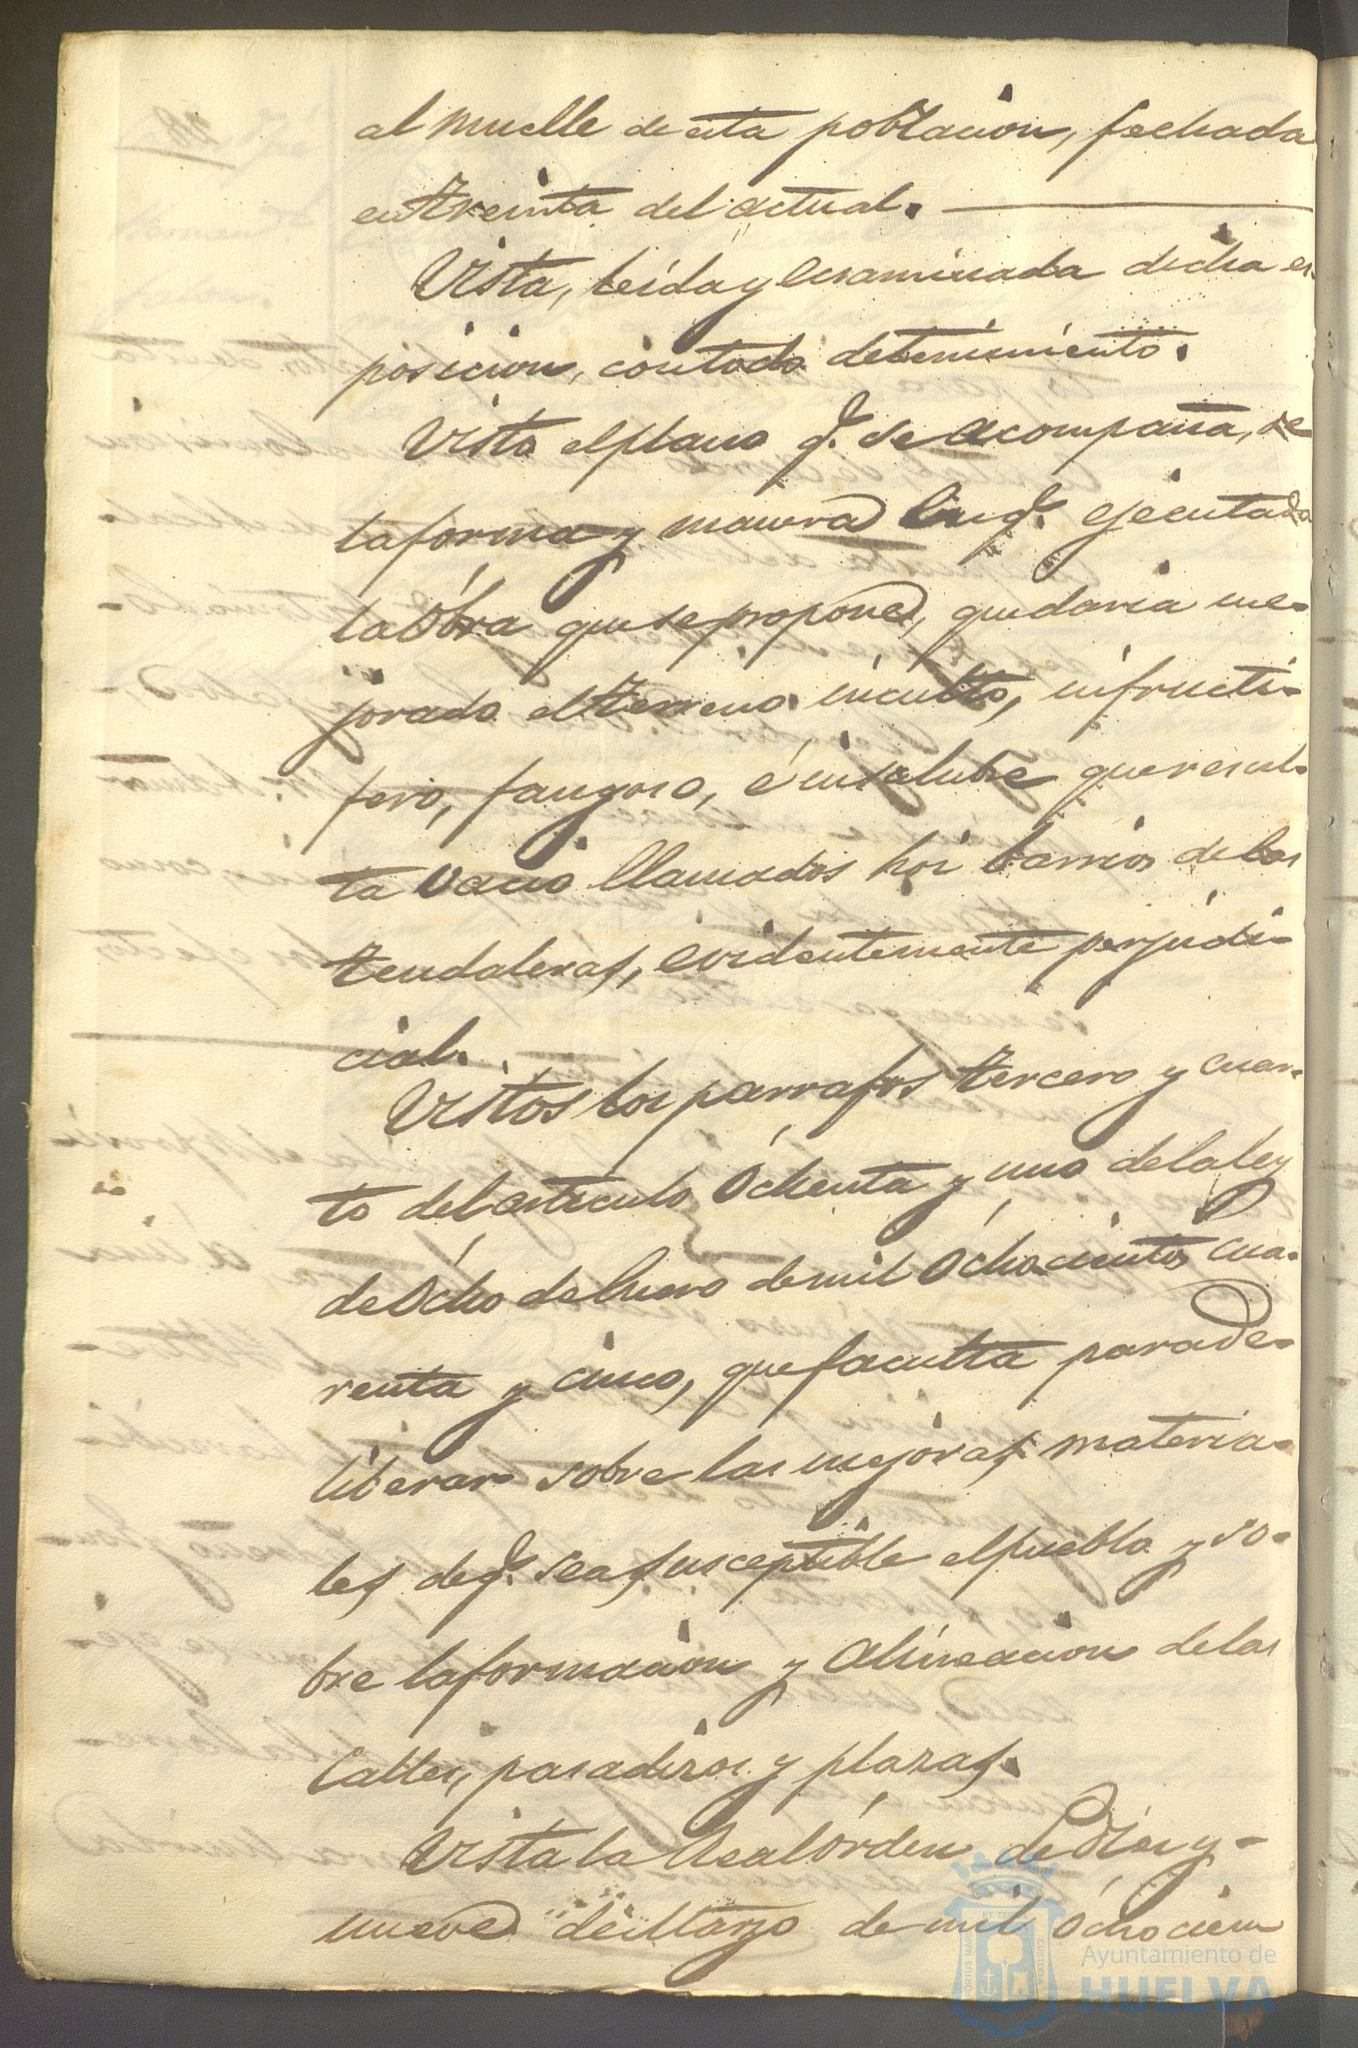 al muelle de esta poblacion, fechada
en treinta del actual.
Vista, leida y ecsaminada dicha es
posicion, con todo detenimiento.
Visto el plano q.e se acompaña, de
la forma y manera en q.e ejecutada
la Obra que se propone, quedaria me-
jorado el terreno inculto, infructi-
fero, fangoso, é insalubre que resul-
ta vacio llamados hoi barrios de las
tendaleras, evidentemente perjudi-
cial.
Vistos los parrafos tercero y cuar-
to del articulo Ochenta y uno de la ley
de Ocho de Enero de mil Ochocientos cua-
renta y cinco, que faculta para de-
liberar sobre las mejoras materia-
les de q.e sea susceptible el pueblo y so-
bre la formacion y Alineacion de las
Calles, pasadizos y plazas.
Vista la Real órden de Diez y-
nueve de Marzo de mil Ochocien
Ayuntamiento de
HUELVA